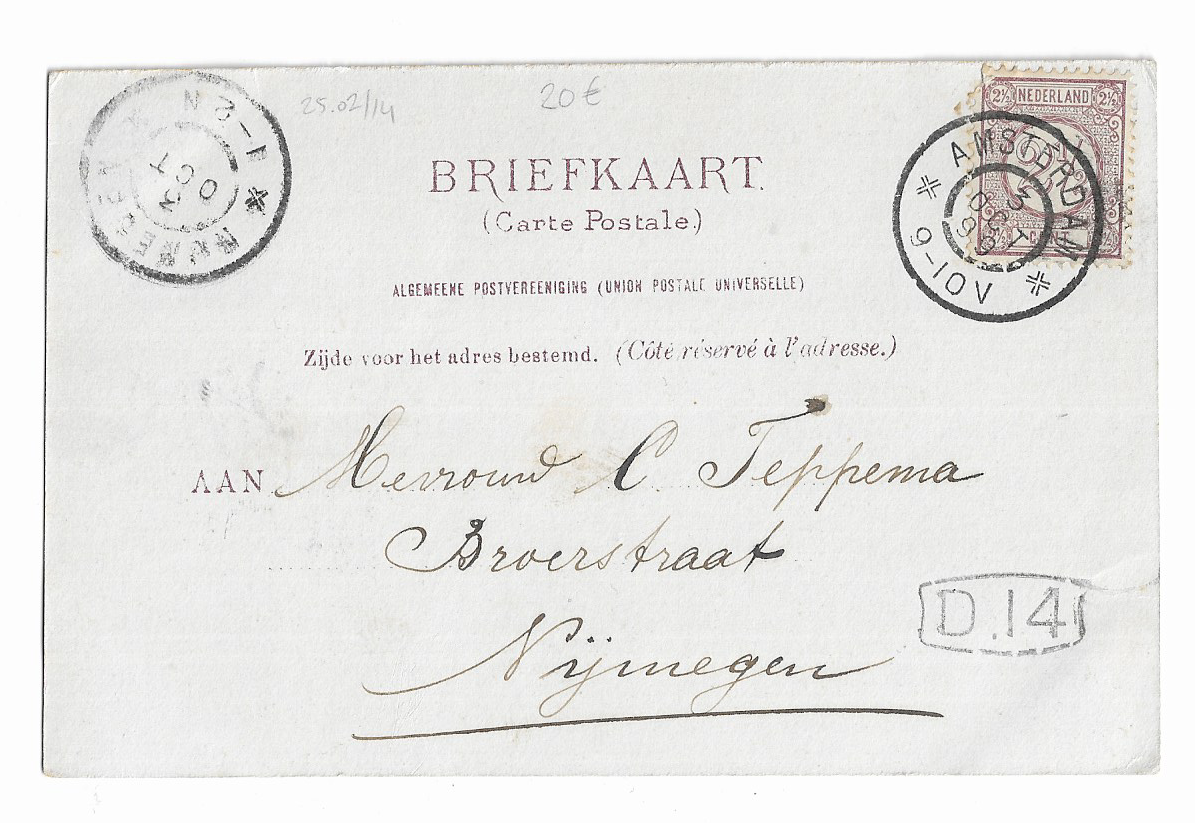 25.02/14
20€
BRIEFKAART.
(Carte Postale.)
ALGEMEENE POSTVEREENIGING (UNION POSTALE UNIVERSELLE)
Zijde voor het adres bestemd. (Côté réservé à l'adresse.)
AAN Mevrouw C Teppema
Broerstraat
Nijmegen
D.14
2½ NEDERLAND 2½
CENT
AMSTERDAM
3
OCT
99
9-10V
NIJMEGEN
3
OCT
1-2N